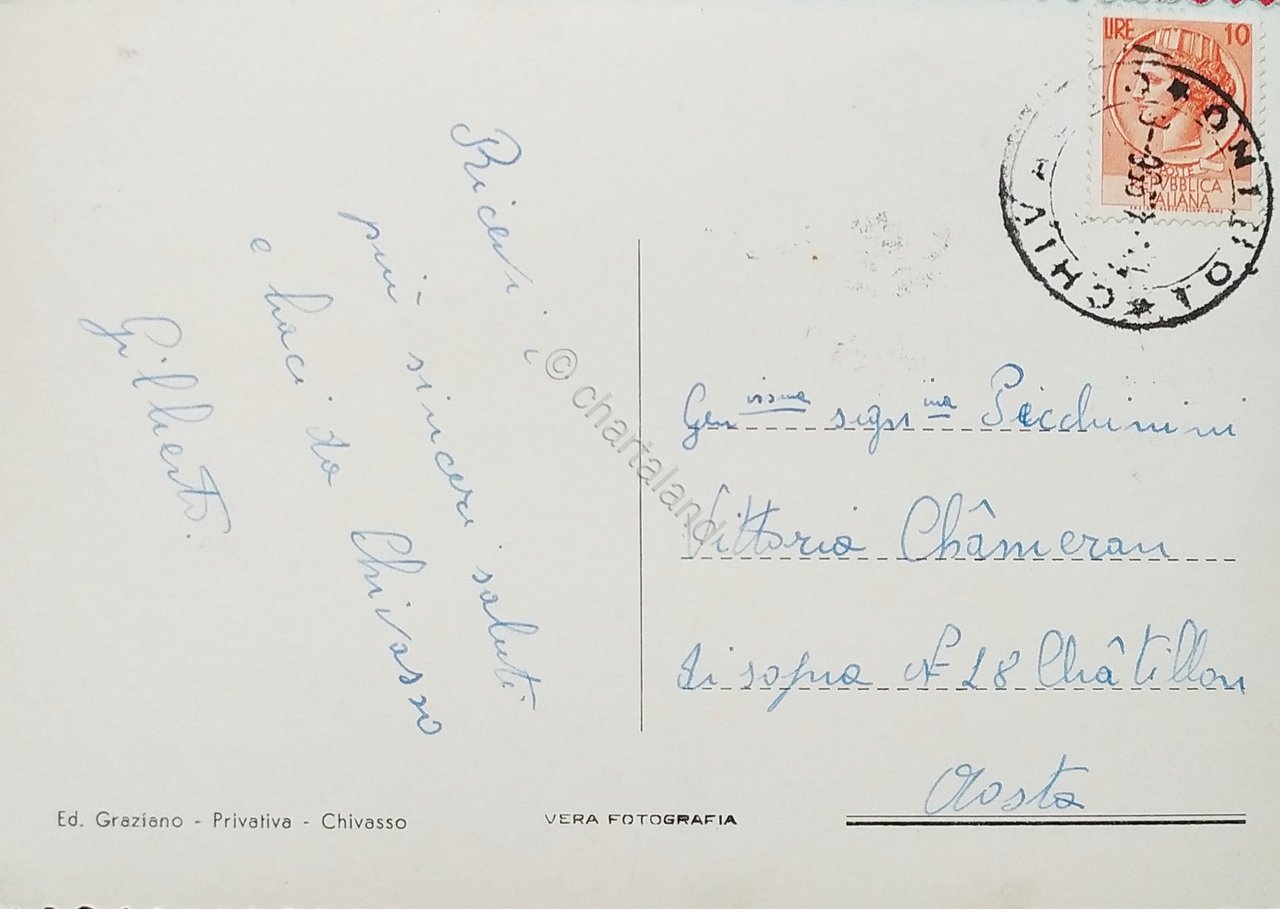 LIRE 10
POSTE
REPVBBLICA
ITALIANA
CHIV
TORINO
Ricevi i
più sinceri saluti
e baci da Chivasso
Gilberto.
© chartaland
Gen issima sigr ina Picchinini
Vittoria Châmeran
di sopra N° 28 Châtillon
Aosta
Ed. Graziano - Privativa - Chivasso
VERA FOTOGRAFIA